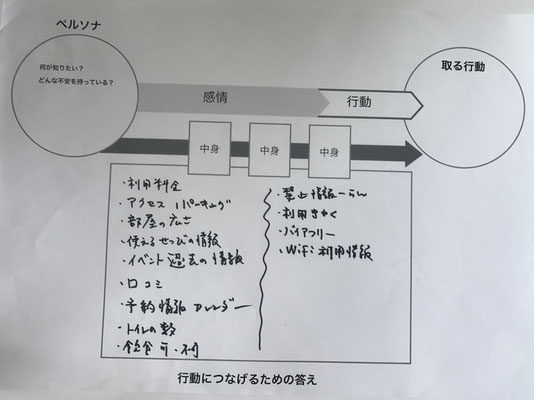 ペルソナ
何が知りたい?
どんな不安を持っている?
取る行動
感情
行動
中身
中身
中身
・利用料金
・アクセス パーキング
・部屋の広さ
・使えるせつびの情報
・イベント 過去の情報
・口コミ
・予約情報 カレンダー
・トイレの数
・飲食 可・不可
・禁止情報一らん
・利用きやく
・バリアフリー
・WiFi利用情報
行動につなげるための答え